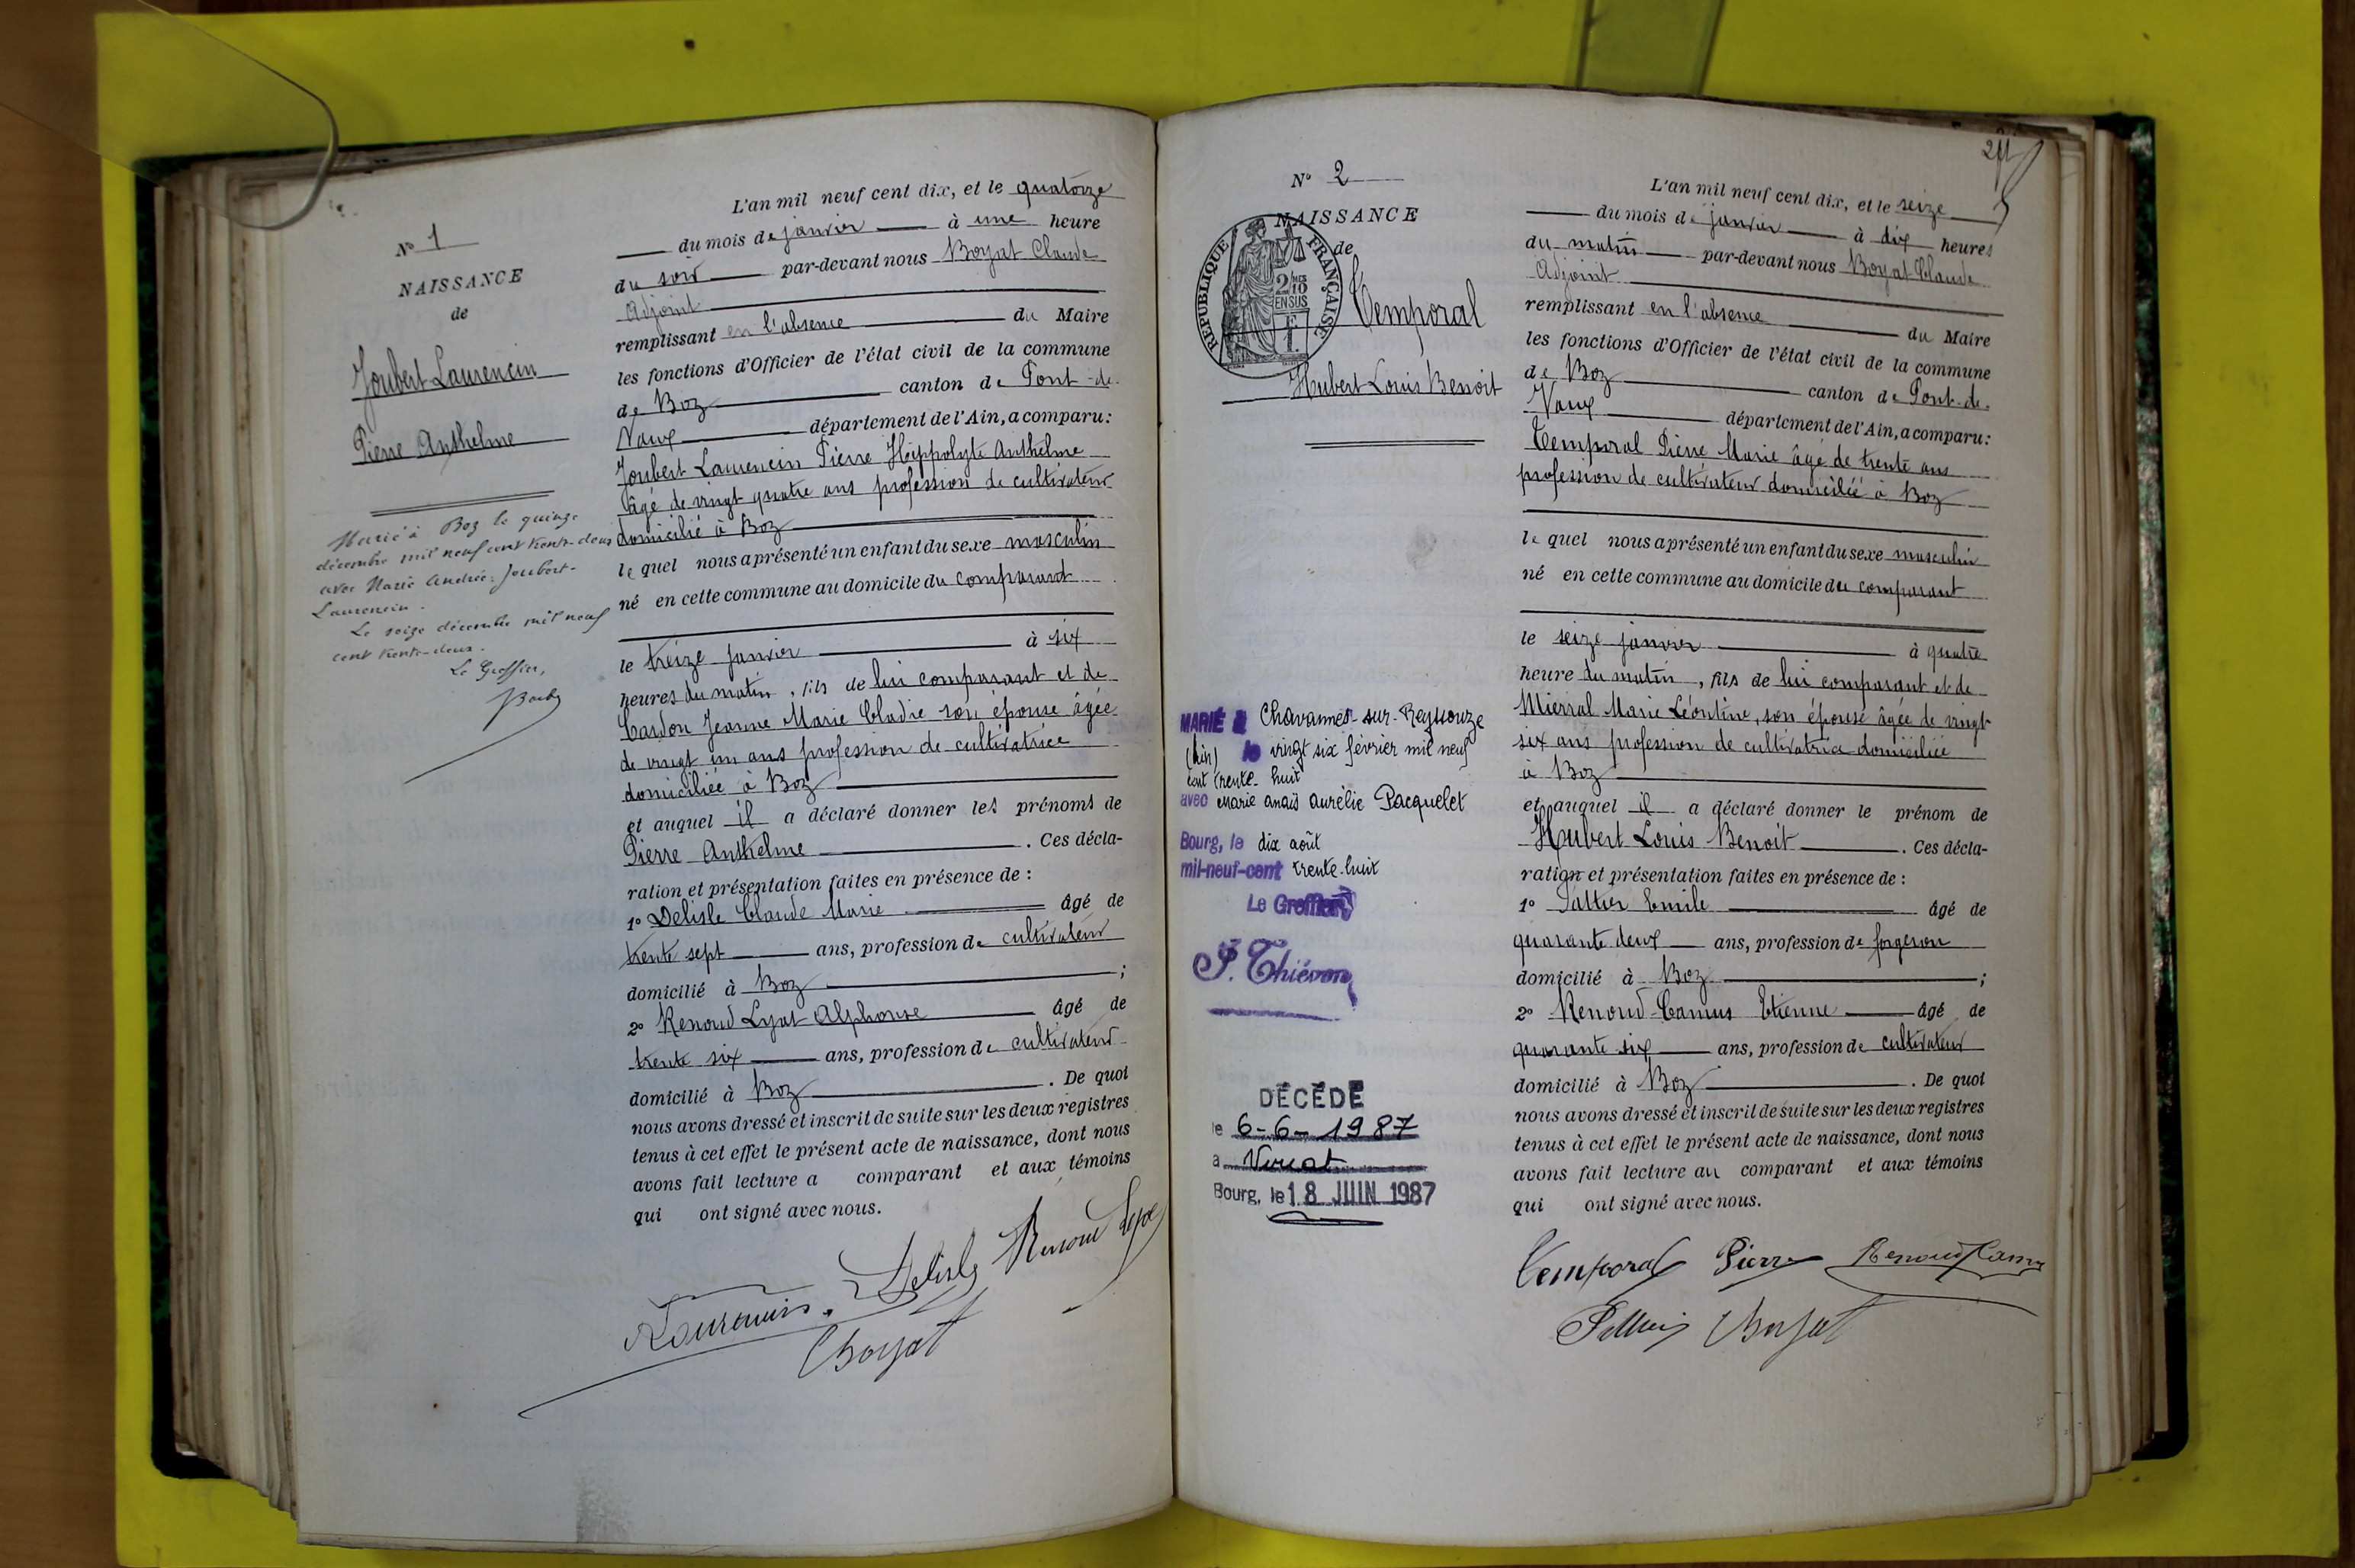 N° 1
NAISSANCE
de
Joubert Laurencin
Pierre Anthelme
Marié à Boz le quinze
décembre mil neuf cent trente-deux
avec Marie Andrée Joubert-
Laurencin.
Le seize décembre mil neuf
cent trente-deux.
Le Greffier,
L'an mil neuf cent dix, et le quatorze
du mois de janvier à une heure
du soir par-devant nous Boyat Claude
Adjoint
remplissant en l'absence du Maire
les fonctions d'Officier de l'état civil de la commune
de Boz canton de Pont-de-
Vaux département de l'Ain, a comparu:
Joubert Laurencin Pierre Hippolyte Anthelme
âgé de vingt quatre ans profession de cultivateur
domicilié à Boz
lequel nous a présenté un enfant du sexe masculin
né en cette commune au domicile du comparant
le treize janvier à six
heures du matin, fils de lui comparant et de
Cardon Jeanne Marie Cladie son épouse âgée
de vingt un ans profession de cultivatrice
domiciliée à Boz
et auquel il a déclaré donner les prénoms de
Pierre Anthelme. Ces décla-
ration et présentation faites en présence de :
1° Delisle Claude Marie âgé de
trente sept ans, profession de cultivateur
domicilié à Boz ;
2° Renoud Lyat Alphonse âgé de
trente six ans, profession de cultivateur
domicilié à Boz. De quoi
nous avons dressé et inscrit de suite sur les deux registres
tenus à cet effet le présent acte de naissance, dont nous
avons fait lecture a comparant et aux témoins
qui ont signé avec nous.
Laurencin. Delisle Renoud Lyat
Boyat
N° 2
NAISSANCE
de
RÉPUBLIQUE FRANÇAISE
2/10
EN SUS
Temporal
Hubert Louis Benoit
MARIÉ à Chavannes-sur-Reyssouze
(Ain) le vingt six février mil neuf
cent trente-huit
avec Marie Anaïs Aurélie Pacquelet
Bourg, le dix août
mil-neuf-cent trente-huit
Le Greffier
P. Thiévon
DÉCÉDÉ
le 6-6-1987
a Viriat
Bourg, le 18 JUIN 1987
L'an mil neuf cent dix, et le seize
du mois de janvier à dix heures
du matin par-devant nous Boyat Claude
Adjoint
remplissant en l'absence du Maire
les fonctions d'Officier de l'état civil de la commune
de Boz canton de Pont-de-
Vaux département de l'Ain, a comparu:
Temporal Pierre Marie âgé de trente ans
profession de cultivateur domicilié à Boz
lequel nous a présenté un enfant du sexe masculin
né en cette commune au domicile du comparant
le seize janvier à quatre
heure du matin, fils de lui comparant et de
Mierral Marie Léontine, son épouse âgée de vingt
six ans profession de cultivatrice domiciliée
à Boz
et auquel il a déclaré donner le prénom de
Hubert Louis Benoit. Ces décla-
ration et présentation faites en présence de :
1° Emile âgé de
quarante deux ans, profession de forgeron
domicilié à Boz ;
2° Renoud-Camus Etienne âgé de
quarante six ans, profession de cultivateur
domicilié à Boz. De quoi
nous avons dressé et inscrit de suite sur les deux registres
tenus à cet effet le présent acte de naissance, dont nous
avons fait lecture au comparant et aux témoins
qui ont signé avec nous.
Temporal Pierre Renoud Camus
Boyat